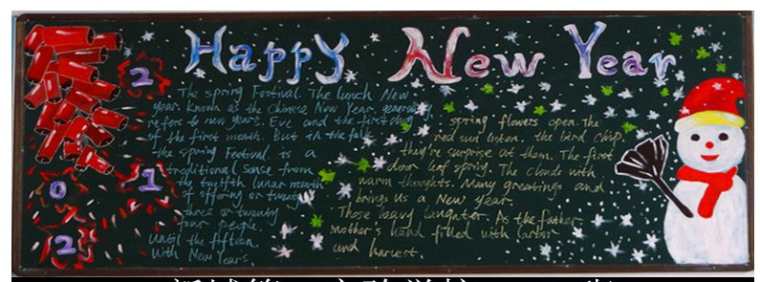 Happy New Year
2
0
1
2
The spring Festival. The lunch New
year known as the Chinese New Year
refers to new years. Eve and the first day
of the first month. But in the folk
the spring Festival is a
traditional sense from
the twelfth lunar month
of offering or twenty
three or twenty
four people.
until the fifteen.
With New Years.
spring flowers open. The
red sun listen. the bird chip.
they're surprise at them. The first
down leaf spring. The clouds with
warm thoughts. Many greetings and
brings us a New year.
Those heavy laughter. As the father
mother's hand filled with labor
and harvest.